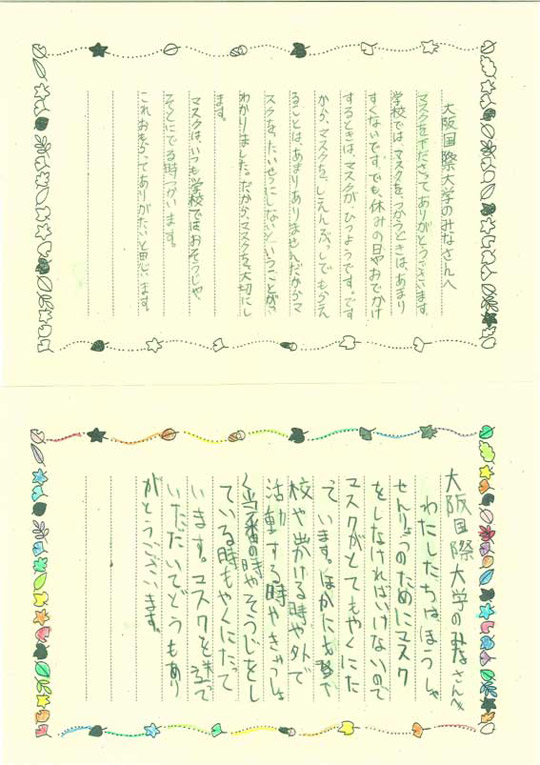 大阪国際大学のみなさんへ
マスクを下ださってありがとうございます。
学校では、マスクをつかうときは、あまり
すくないです。でも、休みの日やおでかけ
するときは、マスクが、ひつようです。です
から、マスクを
ることは、あまりありませんだからマ
スクを、たいせつにしないとということが、
わかりました。だから、マスクを、大切にし
ます。
マスクは、いつも学校ではおそうじや、
そとにでる時つかいます。
これおもらってありがたいと思います。
大阪国際大学のみなさんへ
わたしたちは、ほうしゃ
せんりょうのためにマスク
をしなければいけないので
マスクがとてもやくにた
て います。ほかにも
校や出かける時や外で
活動する時やきゅうしょ
く当番の時やそうじをし
ている時もやくにたって
います。マスクを
いただいてどうもあり
がとうございます。